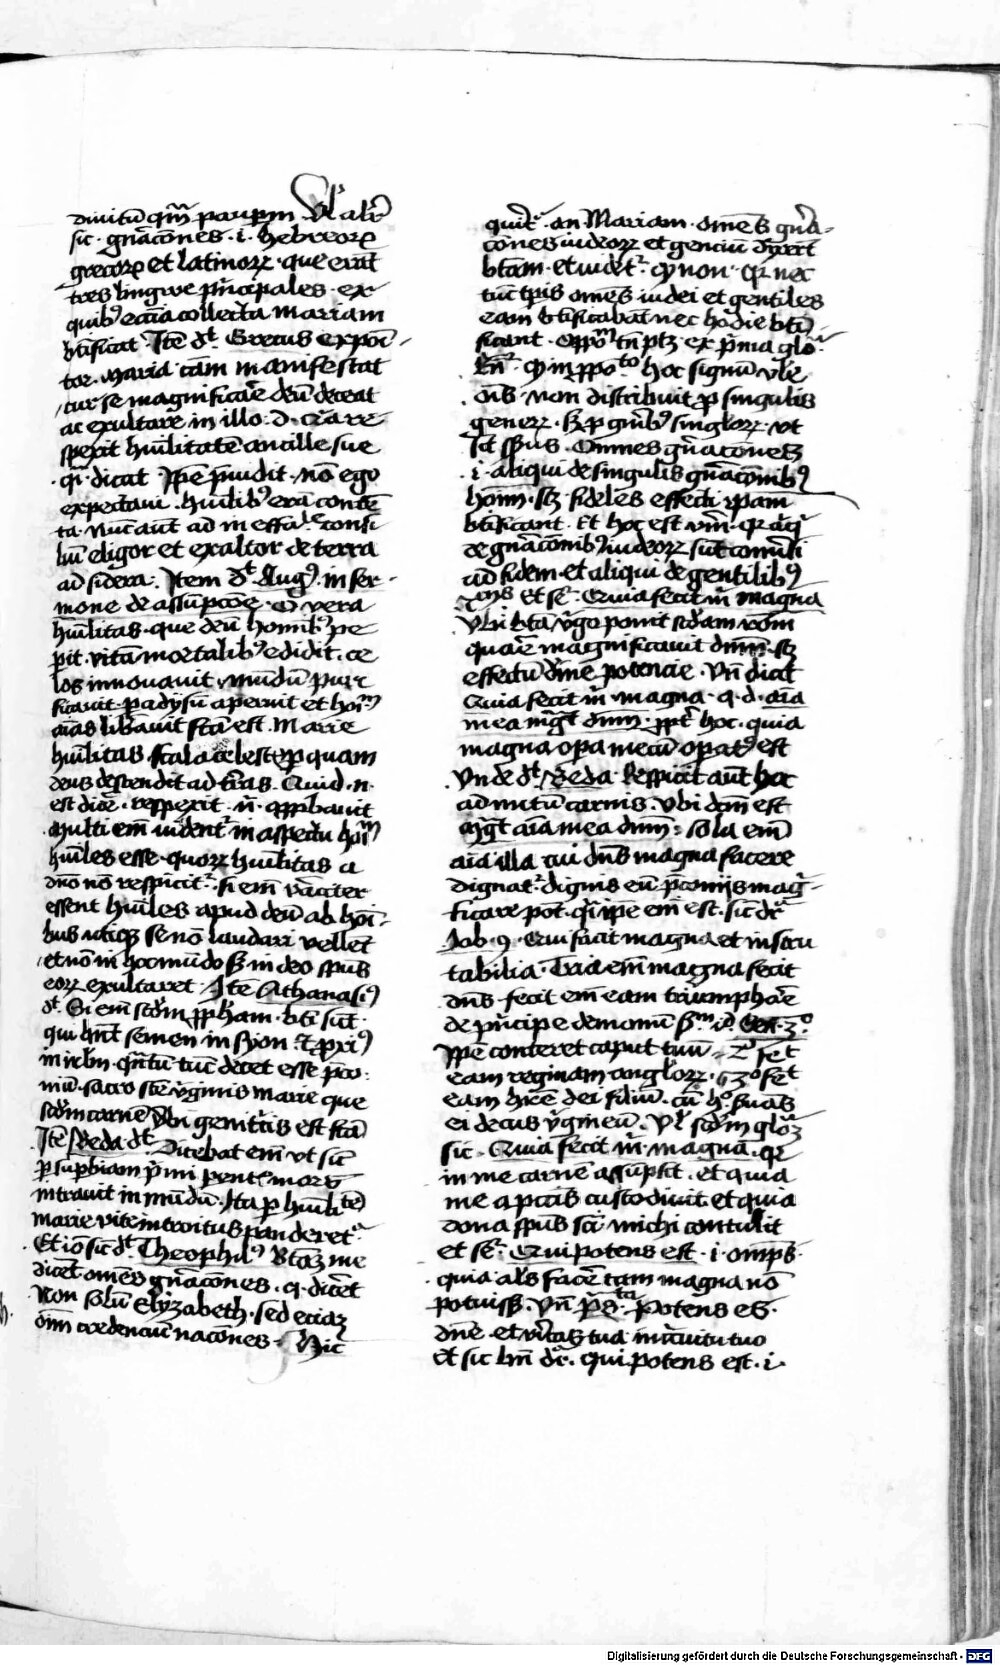 diuitū qm̄ paupum Vl' alr̄
sic · gn̄acōnes · i · hebreorꝝ
grecorꝝ et latinorꝝ · que erāt
tres lingwe pn̄cipales · ex
quibꝰ ecc̄ia collecta mariam
bt̄ificat · Itē dt̄ · Grecus expoi-
tor · maria tam manifestat
cur se magnificar̄e deū deceat
ac exultar̄e in illo · d · Q̄ a re
spexit hūilitatē ancille sue
q · dicat Ip̄e p̄uidit · nō ego
expectaui · hūilibꝰ erā contē
ta · nūc aūt ad in effa consi
liū eligor et exaltor de terra
ad sidera · Item dt̄ Augꝰ · in ser-
mone de assūpcōe · O vera
hūilitas · que deū hoīnibꝰ pe
perit · vitā mortalibꝰ edidit · ce
los innouauit · mūdū puri
ficauit · paradysū aperuit et hoīm
aīas liberauit scā est Marie
hūilitas scala celestꝭ p quam
deus descendit ad t̄ras · Quid · n ·
est dicē · respexit · n̄ · approbauit
Multi em̄ vident̄ in aspectu hoīm
hūiles esse · quorꝝ hūilitas a
dn̄o nō respicit̄ · si em̄ vāciter
essent hūiles apud deū ab hoī-
bus utiqꝫ se nō laudari vellent
et nō in hoc mūdo sꝫ in deo sp̄us
eorꝝ exultaret · Itē Athanasiꝰ
dt̄ · Si em̄ scd̄m ppham · bt̄i sūt
qui hn̄t semen in syon et
in irlm · qn̄tū tūc decet esse
niū · sacro scē v̄ginis marie que
scd̄m carnē Vbi genitris est scā
Itē Beda dt̄ · Dicebat em̄ ut sic
p supbiam p̄mi parentꝭ mors
intrauit in mūdū · Ita p hūilitē
marie vite introitus panderet̄ ·
Et iō sic dt̄ Theophilꝰ Bt̄az me
dicēt omēs gn̄acōnes · q · dicēt
Non solū Elyzabeth · sed eciaz
oīm credenciū nacōnes · Hic
querit̄ · an Mariam · omēs gn̄a-
cōnes iudeorꝝ et genciū dixerūt
bt̄am · et videt̄ · qd non · qr nec
tūc tp̄is omēs iudei et gentiles
eam bt̄ificabāt nec hodie bt̄i-
ficant · Oppōm tn̄ ptꝫ ex p̄ma glo ·
Rn̄ · qd in pposito hoc signū vlē
oīns · non distribuit p singulis
generꝝ · Sꝫ p gn̄ibꝰ singlorꝝ · vt
sit sp̄us · Omnes gn̄acōnes
· i · aliqui de singulis gn̄acōnibꝰ
hoīm · scꝫ fideles effecti ipam
bt̄ificant · Et hoc est vm̄ · qr aq̄
de gn̄acōnibꝰ iudeorꝝ sūt conuersi
ad fidem · et aliqui de gentilibꝰ
Et s · Quia fecit m̄ magna
Vbi bt̄a v̄go ponit scd̄am rōm
quar̄e magnificauit dn̄m · scꝫ
effectū diuine potencie · Vn̄ dicit
Quia fecit m̄ · magna · q · d · aīa
mea mḡt dn̄m · ppt̄ hoc · quia
magna opa mecū opatꝰ est
Vn̄ de dt̄ Beda · Respicit aūt hoc
ad inicū carnis · Vbi dc̄m est
Mḡt aīa mea dn̄m · sola em̄
aīa illa cui dn̄s magna facere
dignat̄ · dignis eū p̄coniis mag-
ficare pōt · qr ipe em̄ est · sic dr̄
Job · 9 · Qui facit magna et inscru
tabilia · Tria em̄ magna fecit
dn̄s · fecit em̄ eam triumphar̄e
de p̄ncipe demonū Gen · 3°
Ip̄e conteret caput tuū 2° fet
eam reginam anglorꝝ · 3° fet
eam
ei decus v̄gineū · Vl' scd̄m glo
sic · Quia fecit m̄ magna · qr
in me carnē assūpsit · et quia
me a pctīs custodiuit et quia
dona sp̄us scī michi contulit
et s · Qui potens est · i · omps ·
quia als facē tam magna nō
potuissꝫ · Vn̄ ps · Potens es ·
dn̄e · et v̄itas tua in circuitu tuo
Et sic bn̄ dr̄ · qui potens est · i ·
Digitalisierung gefördert durch die Deutsche Forschungsgemeinschaft - DFG